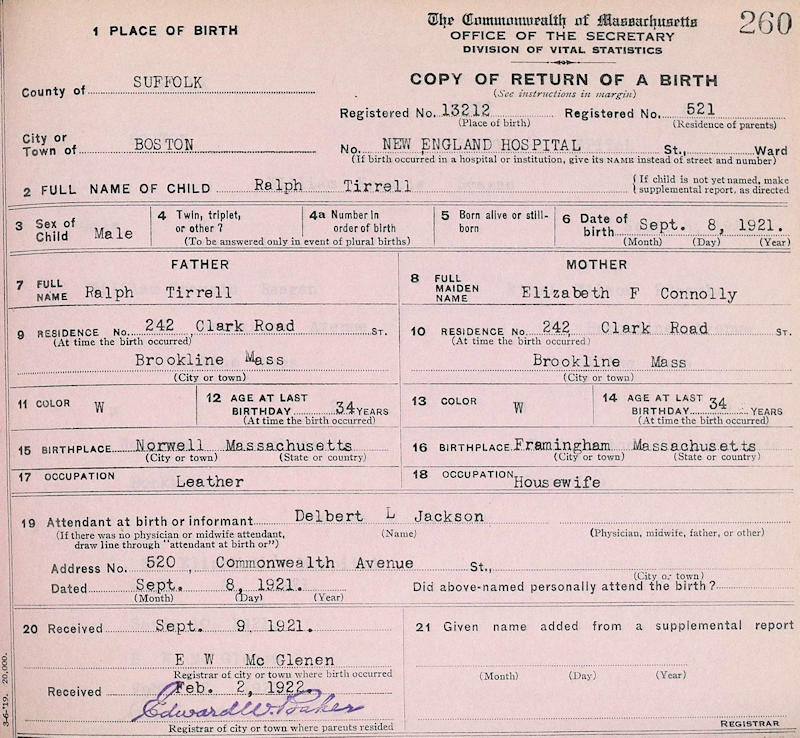 The Commonwealth of Massachusetts
260
1 PLACE OF BIRTH
OFFICE OF THE SECRETARY
DIVISION OF VITAL STATISTICS
COPY OF RETURN OF A BIRTH
(See instructions in margin)
County of SUFFOLK
Registered No. 13212 Registered No. 521
(Place of birth) (Residence of parents)
City or
Town of BOSTON
No. NEW ENGLAND HOSPITAL St., Ward
(If birth occurred in a hospital or institution, give its NAME instead of street and number)
2 FULL NAME OF CHILD Ralph Tirrell
{ If child is not yet named, make
supplemental report, as directed
3 Sex of Child Male
4 Twin, triplet, or other?
4a Number in order of birth
(To be answered only in event of plural births)
5 Born alive or still-born
6 Date of birth Sept. 8, 1921.
(Month) (Day) (Year)
FATHER
7 FULL NAME Ralph Tirrell
MOTHER
8 FULL MAIDEN NAME Elizabeth F Connolly
9 RESIDENCE No. 242 Clark Road ST.
(At time the birth occurred)
Brookline Mass
(City or town)
10 RESIDENCE No. 242 Clark Road ST.
(At time the birth occurred)
Brookline Mass
(City or town)
11 COLOR W
12 AGE AT LAST
BIRTHDAY 34 YEARS
(At time the birth occurred)
13 COLOR W
14 AGE AT LAST
BIRTHDAY 34 YEARS
(At time the birth occurred)
15 BIRTHPLACE Norwell Massachusetts
(City or town) (State or country)
16 BIRTHPLACE Framingham Massachusetts
(City or town) (State or country)
17 OCCUPATION Leather
18 OCCUPATION Housewife
19 Attendant at birth or informant Delbert L Jackson
(If there was no physician or midwife attendant, (Name) (Physician, midwife, father, or other)
draw line through "attendant at birth or")
Address No. 520 Commonwealth Avenue St.,
(City or town)
Dated Sept. 8, 1921. Did above-named personally attend the birth?
(Month) (Day) (Year)
20 Received Sept. 9 1921.
E W Mc Glenen
Registrar of city or town where birth occurred
Received Feb. 2, 1922.
Edward W. Baker
Registrar of city or town where parents resided
21 Given name added from a supplemental report
(Month) (Day) (Year)
REGISTRAR
3-6-'19. 20,000.